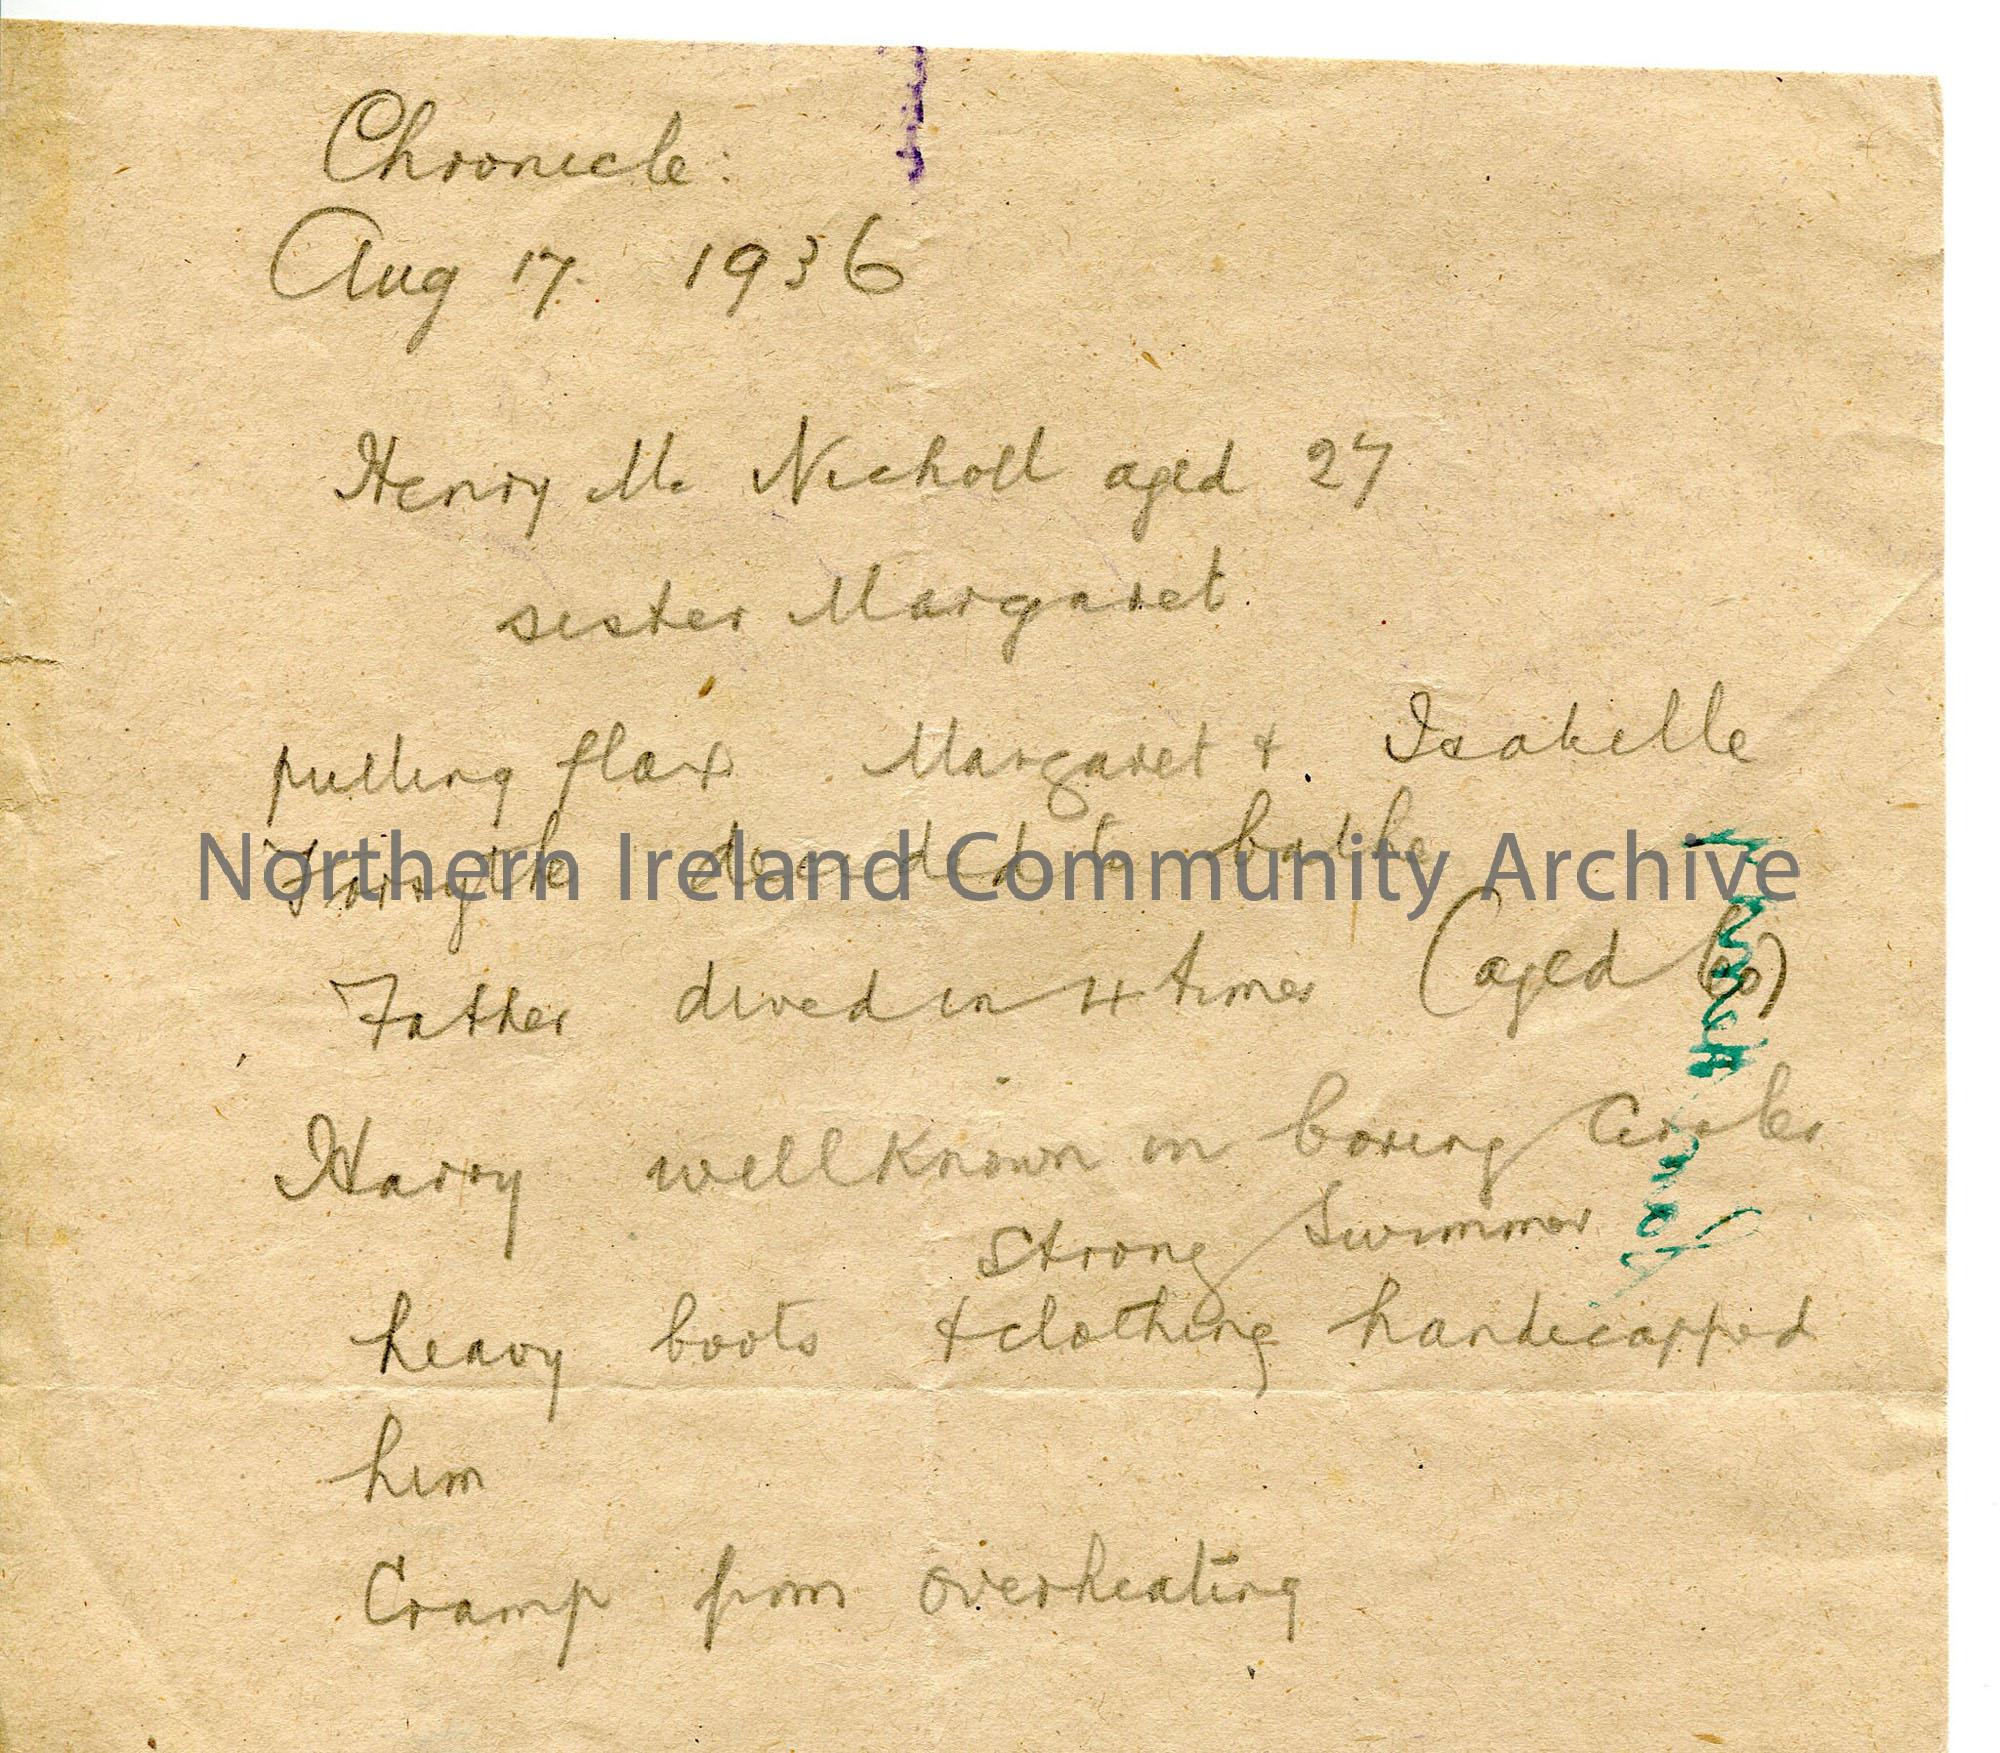 Chronicle:
Aug 17. 1936
Henry Mc Nicholl aged 27
sister Margaret.
pulling flax Margaret + Isabelle
Forsythe decided to bathe
Northern Ireland Community Archive
Father dived in 4 times (aged 60)
Harry well known in boxing circles
Strong Swimmer
heavy boots + clothing handicapped
him
Cramp from overheating